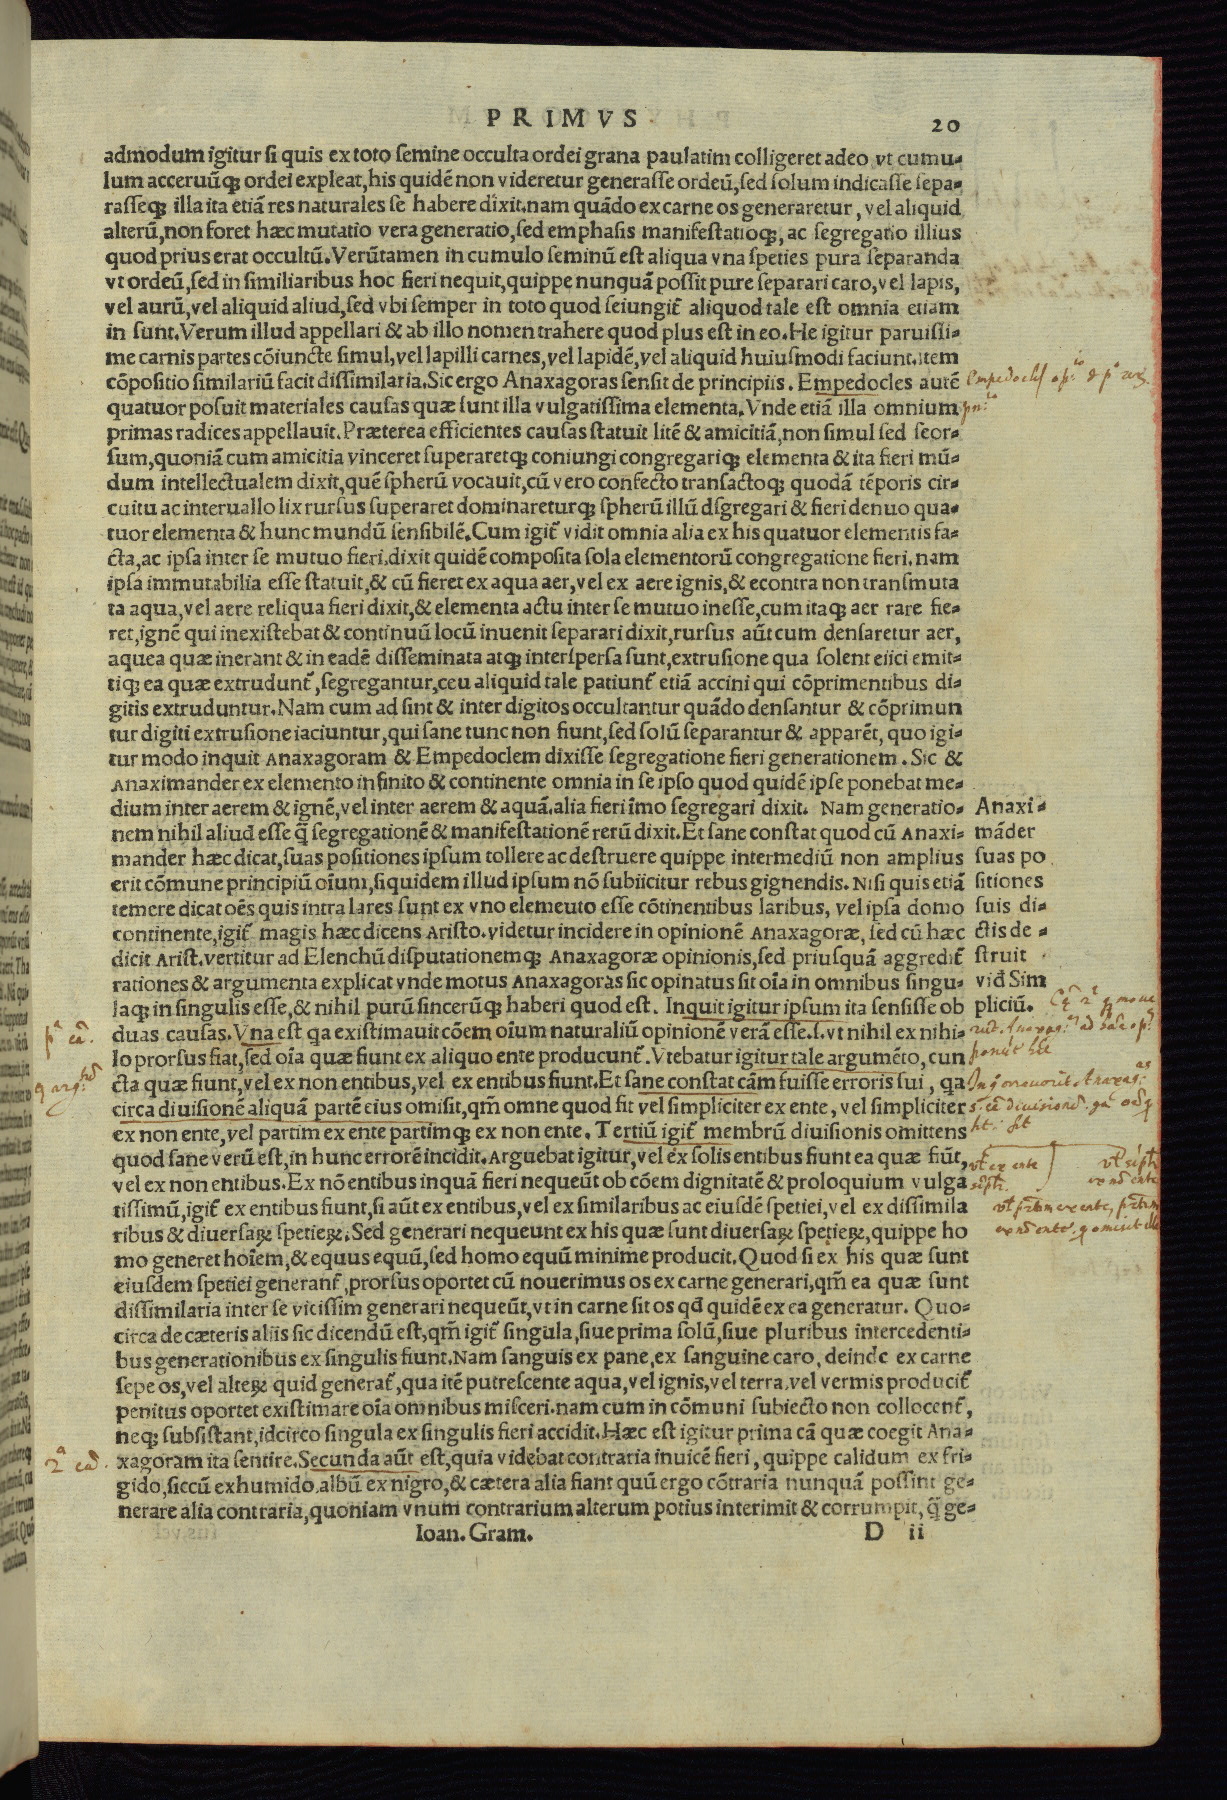 PRIMVS 20
admodum igitur si quis ex toto semine occulta ordei grana paulatim colligeret adeo vt cumu-
lum acceruūq; ordei expleat, his quidē non videretur generasse ordeū, sed solum indicasse sepa-
rasseq; illa ita etiā res naturales se habere dixit. nam quādo ex carne os generaretur, vel aliquid
alterū, non foret hæc mutatio vera generatio, sed emphasis manifestatioq;, ac segregatio illius
quod prius erat occultū. Verūtamen in cumulo seminū est aliqua vna speties pura separanda
vt ordeū, sed in similiaribus hoc fieri nequit, quippe nunquā possit pure separari caro, vel lapis,
vel aurū, vel aliquid aliud, sed vbi semper in toto quod seiungit̃ aliquod tale est omnia etiam
in sunt. Verum illud appellari & ab illo nomen trahere quod plus est in eo. He igitur paruissi-
me carnis partes cōiuncte simul, vel lapilli carnes, vel lapidē, vel aliquid huiusmodi faciunt. item
cōpositio similariū facit dissimilaria. Sic ergo Anaxagoras sensit de principiis. Empedocles autē
quatuor posuit materiales causas quæ sunt illa vulgatissima elementa. Vnde etiā illa omnium
primas radices appellauit. Præterea efficientes causas statuit litē & amicitiā, non simul sed seor-
sum, quoniā cum amicitia vinceret superaretq; coniungi congregariq; elementa & ita fieri mū-
dum intellectualem dixit, quē spherū vocauit, cū vero confecto transactoq; quodā tēporis cir-
cuitu ac interuallo lix rursus superaret dominareturq; spherū illū dsgregari & fieri denuo qua-
tuor elementa & hunc mundū sensibilē. Cum igit̃ vidit omnia alia ex his quatuor elementis fa-
cta, ac ipsa inter se mutuo fieri, dixit quidē composita sola elementorū congregatione fieri, nam
ipsa immutabilia esse statuit, & cū fieret ex aqua aer, vel ex aere ignis, & econtra non transmuta
ta aqua, vel aere reliqua fieri dixit, & elementa actu inter se mutuo inesse, cum itaq; aer rare fie-
ret, ignē qui inexistebat & continuū locū inuenit separari dixit, rursus aūt cum densaretur aer,
aquea quæ inerant & in eadē disseminata atq; interspersa sunt, extrusione qua solent eiici emit-
tiq; ea quæ extrudunt̃, segregantur, ceu aliquid tale patiunt̃ etiā accini qui cōprimentibus di-
gitis extruduntur. Nam cum ad sint & inter digitos occultantur quādo densantur & cōprimun
tur digiti extrusione iaciuntur, qui sane tunc non fiunt, sed solū separantur & apparēt, quo igi-
tur modo inquit Anaxagoram & Empedoclem dixisse segregatione fieri generationem. Sic &
Anaximander ex elemento infinito & continente omnia in se ipso quod quidē ipse ponebat me-
dium inter aerem & ignē, vel inter aerem & aquā. alia fieri īmo segregari dixit. Nam generatio-
nem nihil aliud esse q̃ segregationē & manifestationē rerū dixit. Et sane constat quod cū Anaxi-
mander hæc dicat, suas positiones ipsum tollere ac destruere quippe intermediū non amplius
erit cōmune principiū oīum, siquidem illud ipsum nō subiicitur rebus gignendis. Nisi quis etiā
temere dicat oēs quis intra lares sunt ex vno elemeuto esse cōtinentibus laribus, vel ipsa domo
continente, igit̃ magis hæc dicens Aristo. videtur incidere in opinionē Anaxagoræ, sed cū hæc
dicit Arist. vertitur ad Elenchū disputationemq; Anaxagoræ opinionis, sed priusquā aggredit̃
rationes & argumenta explicat vnde motus Anaxagoras sic opinatus sit oīa in omnibus singu-
laq; in singulis esse, & nihil purū sincerūq; haberi quod est. Inquit igitur ipsum ita sensisse ob
duas causas. Vna est qa existimauit cōem oīum naturaliū opinionē verā esse. s. vt nihil ex nihi-
lo prorsus fiat, sed oīa quæ fiunt ex aliquo ente producunt̃. Vtebatur igitur tale argumēto, cun
cta quæ fiunt, vel ex non entibus, vel ex entibus fiunt. Et sane constat cām fuisse erroris sui, qa
circa diuisionē aliquā partē eius omisit, qm̄ omne quod fit vel simpliciter ex ente, vel simpliciter
ex non ente, vel partim ex ente partimq; ex non ente. Tertiū igit̃ membrū diuisionis omittens
quod sane verū est, in hunc errorē incidit. Arguebat igitur, vel ex solis entibus fiunt ea quæ fiūt,
vel ex non entibus. Ex nō entibus inquā fieri nequeūt ob cōem dignitatē & proloquium vulga
tissimū, igit̃ ex entibus fiunt, si aūt ex entibus, vel ex similaribus ac eiusdē spetiei, vel ex dissimila
ribus & diuersaꝝ spetieꝝ. Sed generari nequeunt ex his quæ sunt diuersaꝝ spetieꝝ, quippe ho
mo generet hoīem, & equus equū, sed homo equū minime producit. Quod si ex his quæ sunt
eiusdem spetiei generant̃, prorsus oportet cū nouerimus os ex carne generari, qm̄ ea quæ sunt
dissimilaria inter se vicissim generari nequeūt, vt in carne sit os qd̄ quidē ex ea generatur. Quo-
circa de cæteris aliis sic dicendū est, qm̄ igit̃ singula, siue prima solū, siue pluribus intercedenti-
bus generationibus ex singulis fiunt. Nam sanguis ex pane, ex sanguine caro, deinde ex carne
sepe os, vel alteꝝ quid generat̃, qua itē putrescente aqua, vel ignis, vel terra, vel vermis producit̃
penitus oportet existimare oīa omnibus misceri. nam cum in cōmuni subiecto non collocent̃,
neq; subsistant, idcirco singula ex singulis fieri accidit. Hæc est igitur prima cā quæ coegit Ana-
xagoram ita sentire. Secunda aūt est, quia videbat contraria inuicē fieri, quippe calidum ex fri-
gido, siccū exhumido. albū ex nigro, & cætera alia fiant quū ergo cōtraria nunquā possint ge-
nerare alia contraria, quoniam vnum contrarium alterum potius interimit & corrumpit, q̃ ge-
Ioan. Gram. D ii
Anaxi-
māder
suas po
sitiones
suis di-
ctis de-
struit
vid̄ Sim
pliciū.
pª cā.
2ª cā.